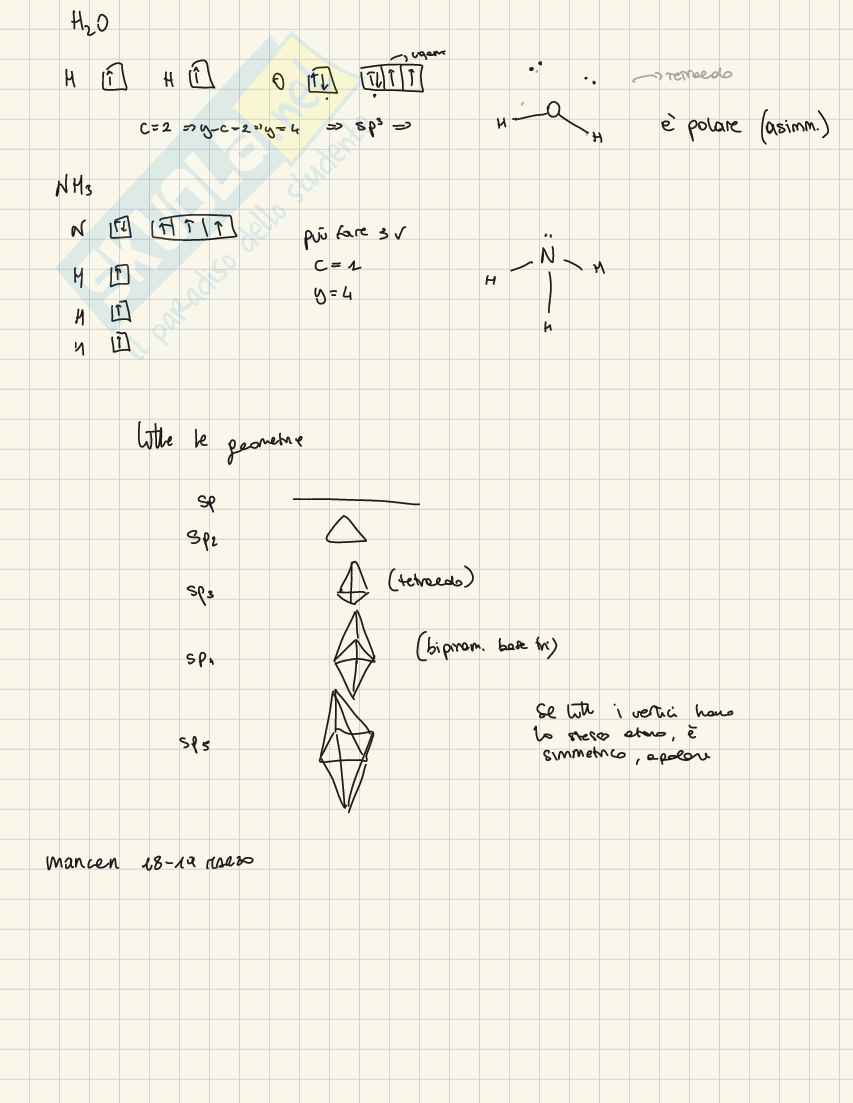 H₂O
H ↑ H ↑ O ↑↓ ↑↓ ↑ ↑ → legami
C=2 ⇒ y-c=2 ⇒ y=4 ⇒ sp³ ⇒
→ tetraedo
H O H
è polare (asimm.)
NH₃
N ↑↓ ↑ ↑ ↑
H ↑
H ↑
H ↑
può fare 3 √
C=1
y=4
H N H
H
tutte le geometrie
sp
sp₂
sp₃ (tetraedo)
sp₄ (bipiram. base tri)
sp₅
Se tutti i vertici hanno
lo stesso atomo, è
simmetrico, apolare
18-19 marzo
SKUOLA.net
il paradiso dello studente